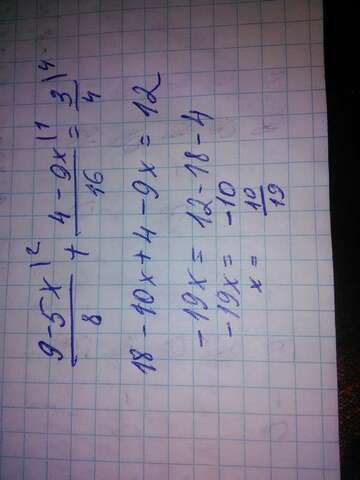 9-5x\2 / 8 + 4-9x\1 / 16 = 3\4 / 4
18-10x+4-9x=12
-19x=12-18-4
-19x=-10
x=10/19